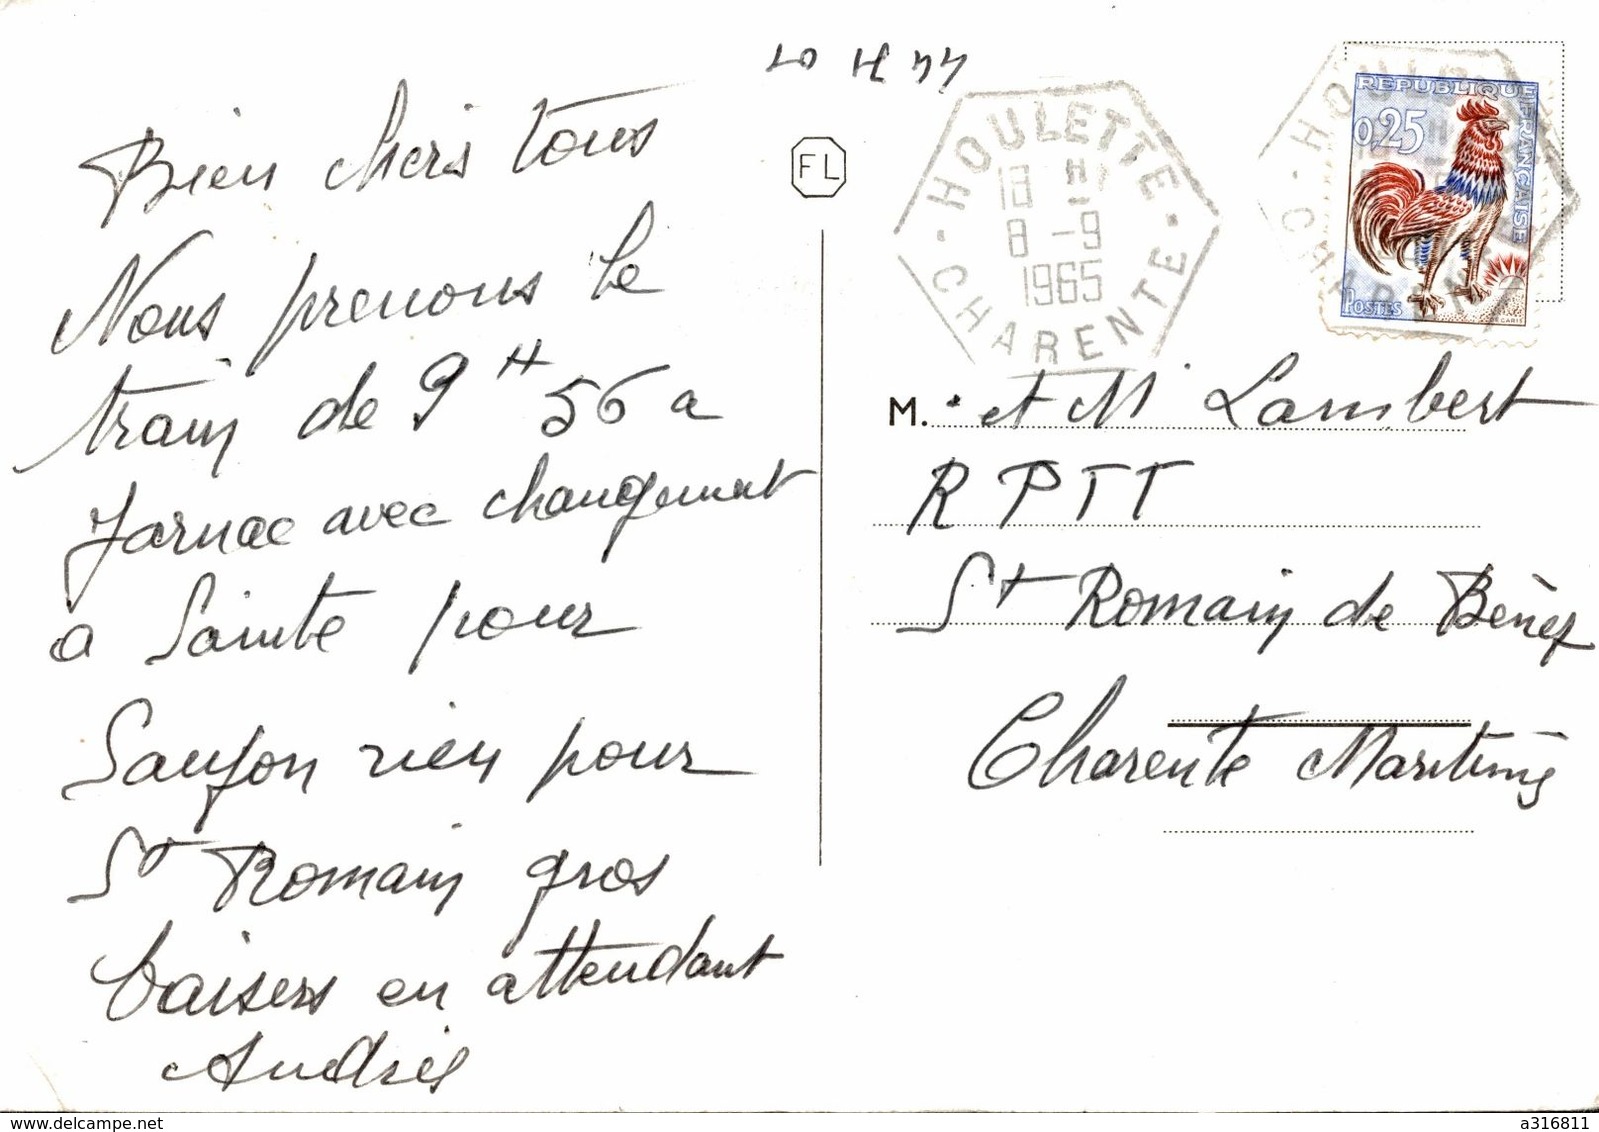 Bien chers tous
Nous prenons le
train de 9 H 56 a
Jarnac avec changement
a Sainte pour
Saujon rien pour
St Romain gros
baisers en attendant
FL
HOULETTE
8 -9
1965
CHARENTE
REPUBLIQUE FRANÇAISE
0,25
POSTES
DECARIS
M. et M Lambert
R P T T
St Romain de Bènez
Charente Maritime
www.delcampe.net
a316811